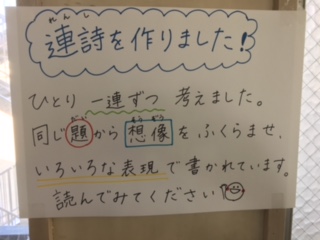 連詩を作りました!
ひとり 一連ずつ 考えました。
同じ題から想像をふくらませ、
いろいろな表現で書かれています。
読んでみてください